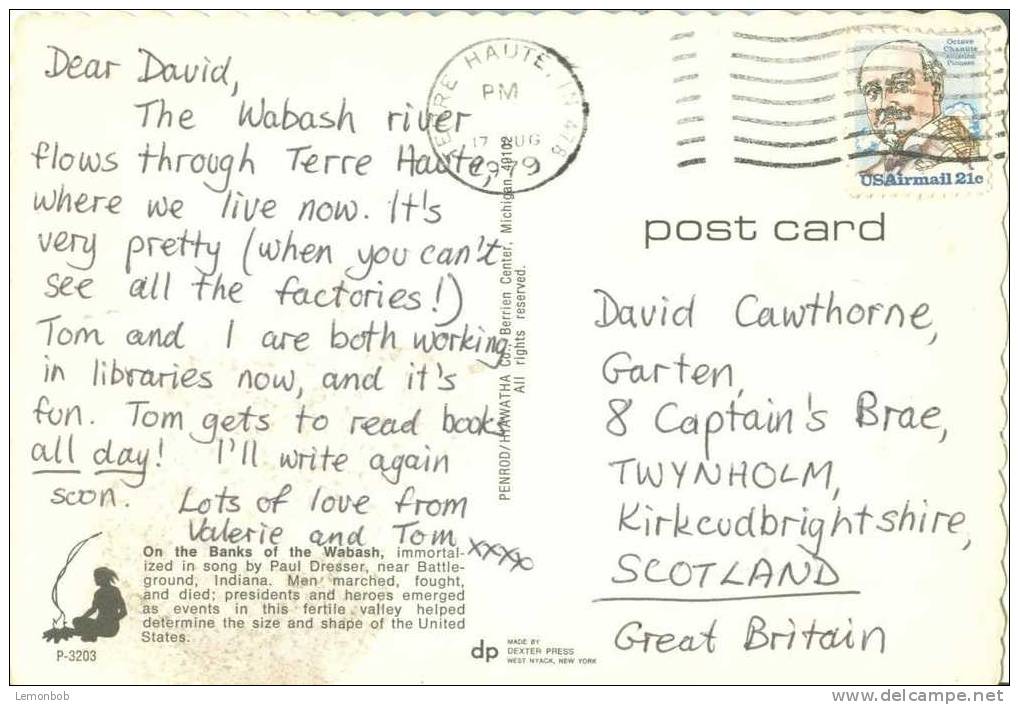 Dear David,
The Wabash river
flows through Terre Haute,
where we live now. It's
very pretty (when you can't
see all the factories!)
Tom and I are both working
in libraries now, and it's
fun. Tom gets to read books
all day! I'll write again
soon. Lots of love from
Valerie and Tom xxxx
On the Banks of the Wabash, immortal-
ized in song by Paul Dresser, near Battle-
ground, Indiana. Men marched, fought,
and died; presidents and heroes emerged
as events in this fertile valley helped
determine the size and shape of the United
States.
P-3203
PENROD/HIAWATHA Co., Berrien Center, Michigan 49102
All rights reserved.
dp
MADE BY
DEXTER PRESS
WEST NYACK, NEW YORK
TERRE HAUTE, IN 478
PM
17 AUG
1979
Octave
Chanute
Aviation
Pioneer
USAirmail 21c
post card
David Cawthorne,
Garten,
8 Captain's Brae,
TWYNHOLM,
Kirkcudbrightshire,
SCOTLAND
Great Britain
Lemonbob
http://www.delcampe.net